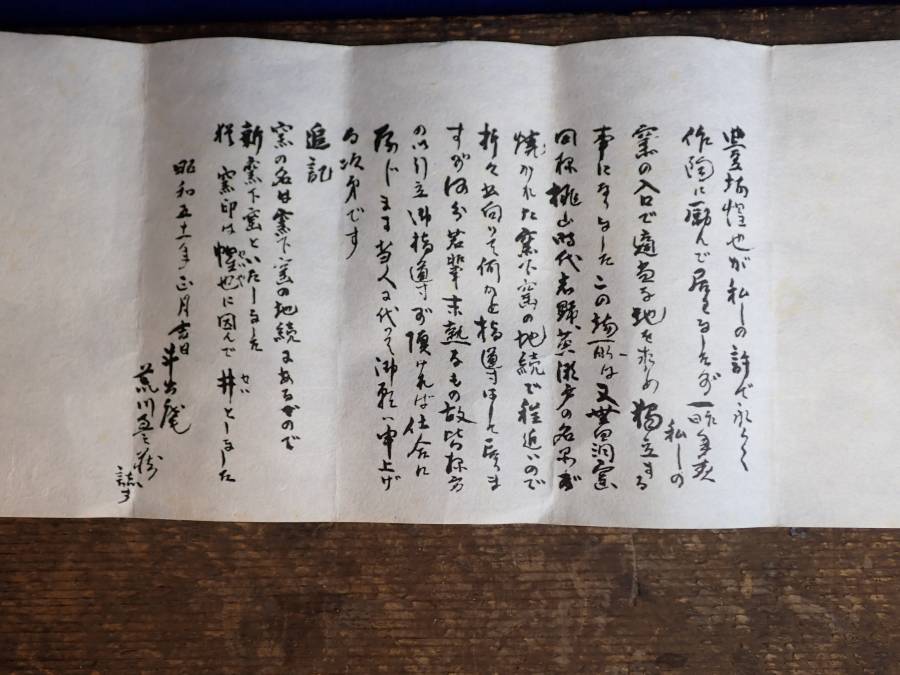 豊場惺也が私しの許で永らく
作陶に励んで居りましたが一昨年 私しの
窯の入口で適当な地を求め独立する
事になりました この場所は又世白洞窯
同様桃山時代志野、黄瀬戸の名品が
焼かれた窯下窯の地続で程近いので
折々出向いて何かと指導はして居りま
すが何分若輩未熟なもの故皆様方
の御引立御指導が頂ければ仕合に
存じます 当人に代って御願い申上げ
る次第です
追記
窯の名は窯下窯の地続にあるので
新窯下窯といたしました
猶 窯印は惺也に因んで井としました
昭和五十一年正月吉日
斗出庵
荒川豊蔵
誌す